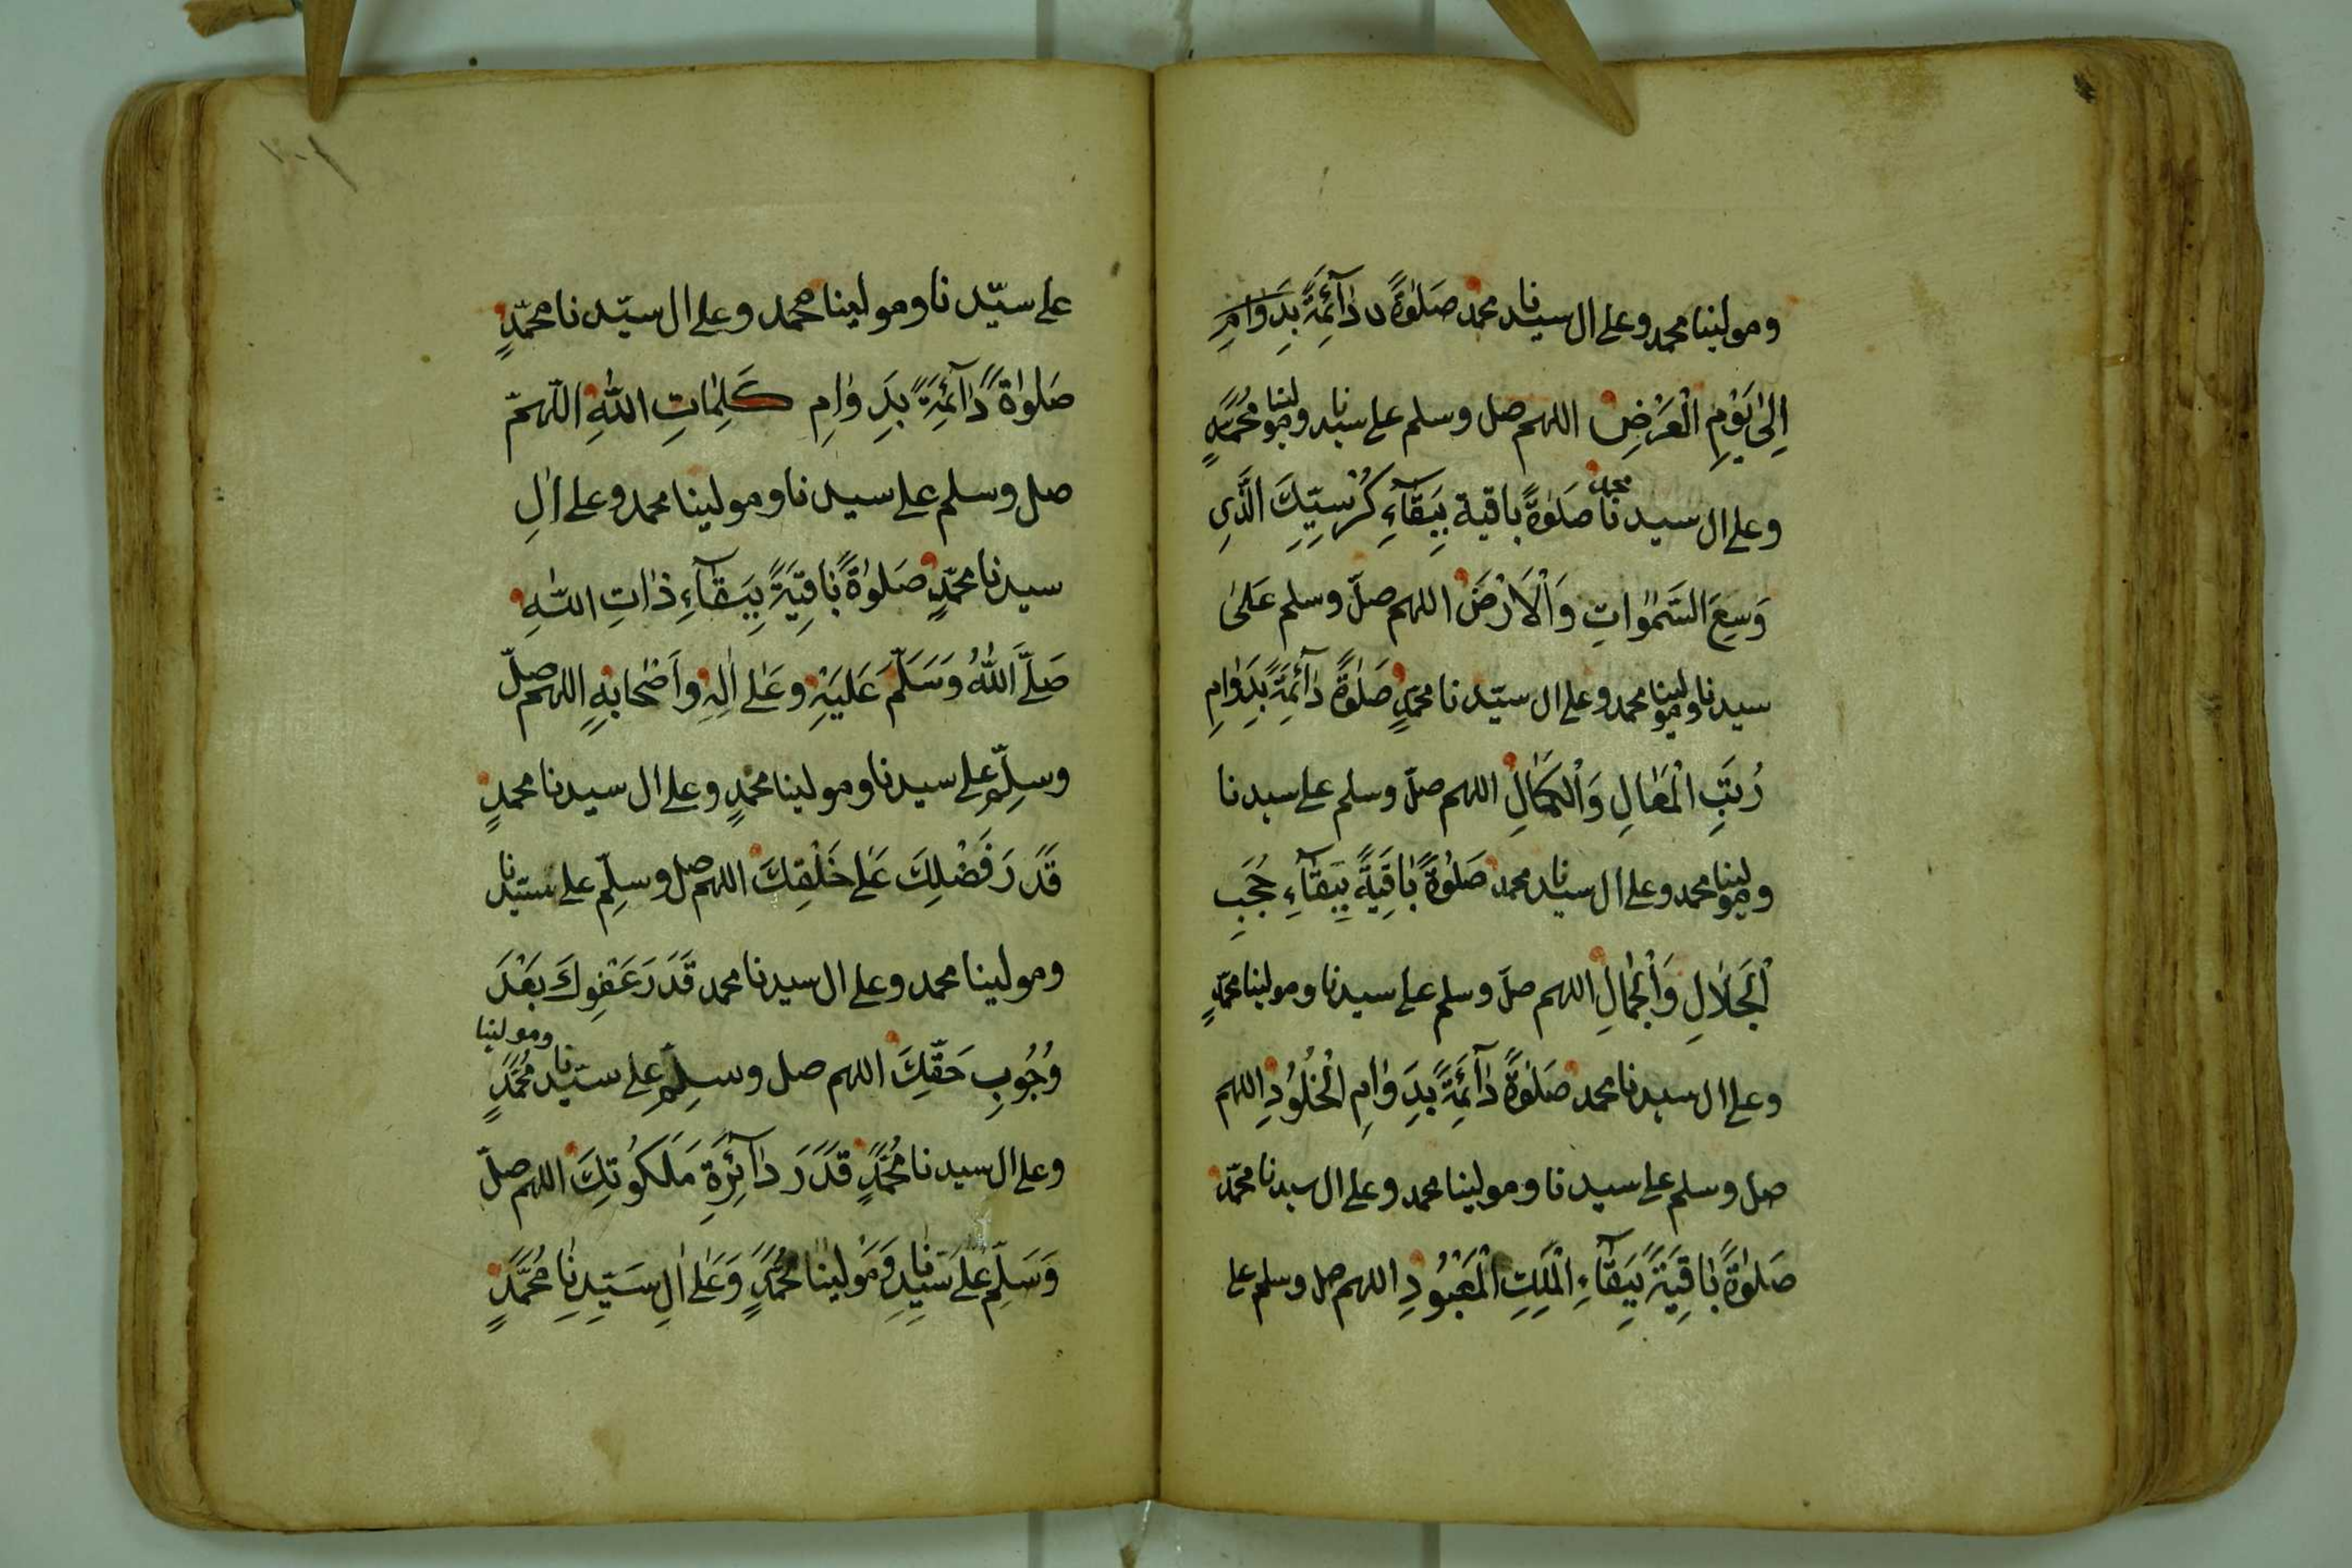 ومولينا محمد وعلى ال سيدنا محمد صَلٰوةً دٰآئِمَةً بِدَوٰامِ
اِلىٰ يَوْمِ الْعَرْضِ اللهم صل وسلم على سيدنا ومولينا مُحَمَّدٍ
وعلى ال سيدنا محمد صَلٰوةً باقية بِبَقٰآءِ كُرْسِيِّكَ الَّذِي
وَسِعَ السَّمٰوٰاتِ وَالْاَرْضَ اللهم صلّ وسلم عَلىٰ
سيدنا ومولينا محمد وعلى ال سيّدنا محمّدٍ صَلٰوةً دٰآئِمَةً بِدَوٰامِ
رُتَبِ الْمَعٰالِ وَالْكَمٰالِ اللهم صلّ وسلم على سيدنا
ومولينا محمد وعلى ال سيدنا محمد صَلٰوةً بٰاقِيَةً بِبَقٰآءِ حُجَبِ
الْجَلٰالِ وَالْجَمٰالِ اللهم صلّ وسلم على سيدنا ومولينا محمّدٍ
وعلى ال سيدنا محمد صَلٰوةً دٰآئِمَةً بِدَوٰامِ الْخُلُوُدِ اللهم
صل وسلم على سيدنا ومولينا محمد وعلى ال سيدنا محمّد
صَلٰوةً بٰاقِيَةً بِبَقٰآءِ الْمَلِكِ الْمَعْبُودِ اللهم صل وسلم على
على سيّدنا ومولينا محمد وعلى ال سيّدنا محمّدٍ
صَلوٰةً دٰآئِمَةً بِدَوٰامِ كَلِمٰاتِ اللّٰهِ اللّهمّ
صل وسلم على سيدنا ومولينا محمد وعلى اٰلِ
سيدنا محمّدٍ صَلوٰةً بٰاقِيَةً بِبَقٰآءِ ذٰاتِ اللّٰهِ
صَلَّى اللّٰهُ وَسَلَّمَ عَلَيْهِ وعَلٰى اٰلِهِ واَصْحٰابِهِ اللهم صلّ
وسلِّم على سيدنا ومولينا محمدٍ وعلى ال سيدنا محمدٍ
قَدَرَ فَضْلِكَ عَلٰى خَلْقِكَ اللهم صل وسلِّم على سيّدنا
ومولينا محمد وعلى ال سيدنا محمد قَدَرَ عَفْوِكَ بَعْدَ
وُجُوبِ حَقِّكَ اللهم صل وسلِّم على سيّدنا ومولينا مُحَمَّدٍ
وعلى ال سيدنا مُحَمَّدٍ قَدَرَ دٰآئِرَةِ مَلَكُوتِكَ اللهم صلّ
وَسَلِّم عَلٰى سَيِّدِنٰا وَمَوْلينٰا مُحَمَّدٍ وَعَلٰى اٰلِ سَيِّدِنٰا مُحَمَّدٍ